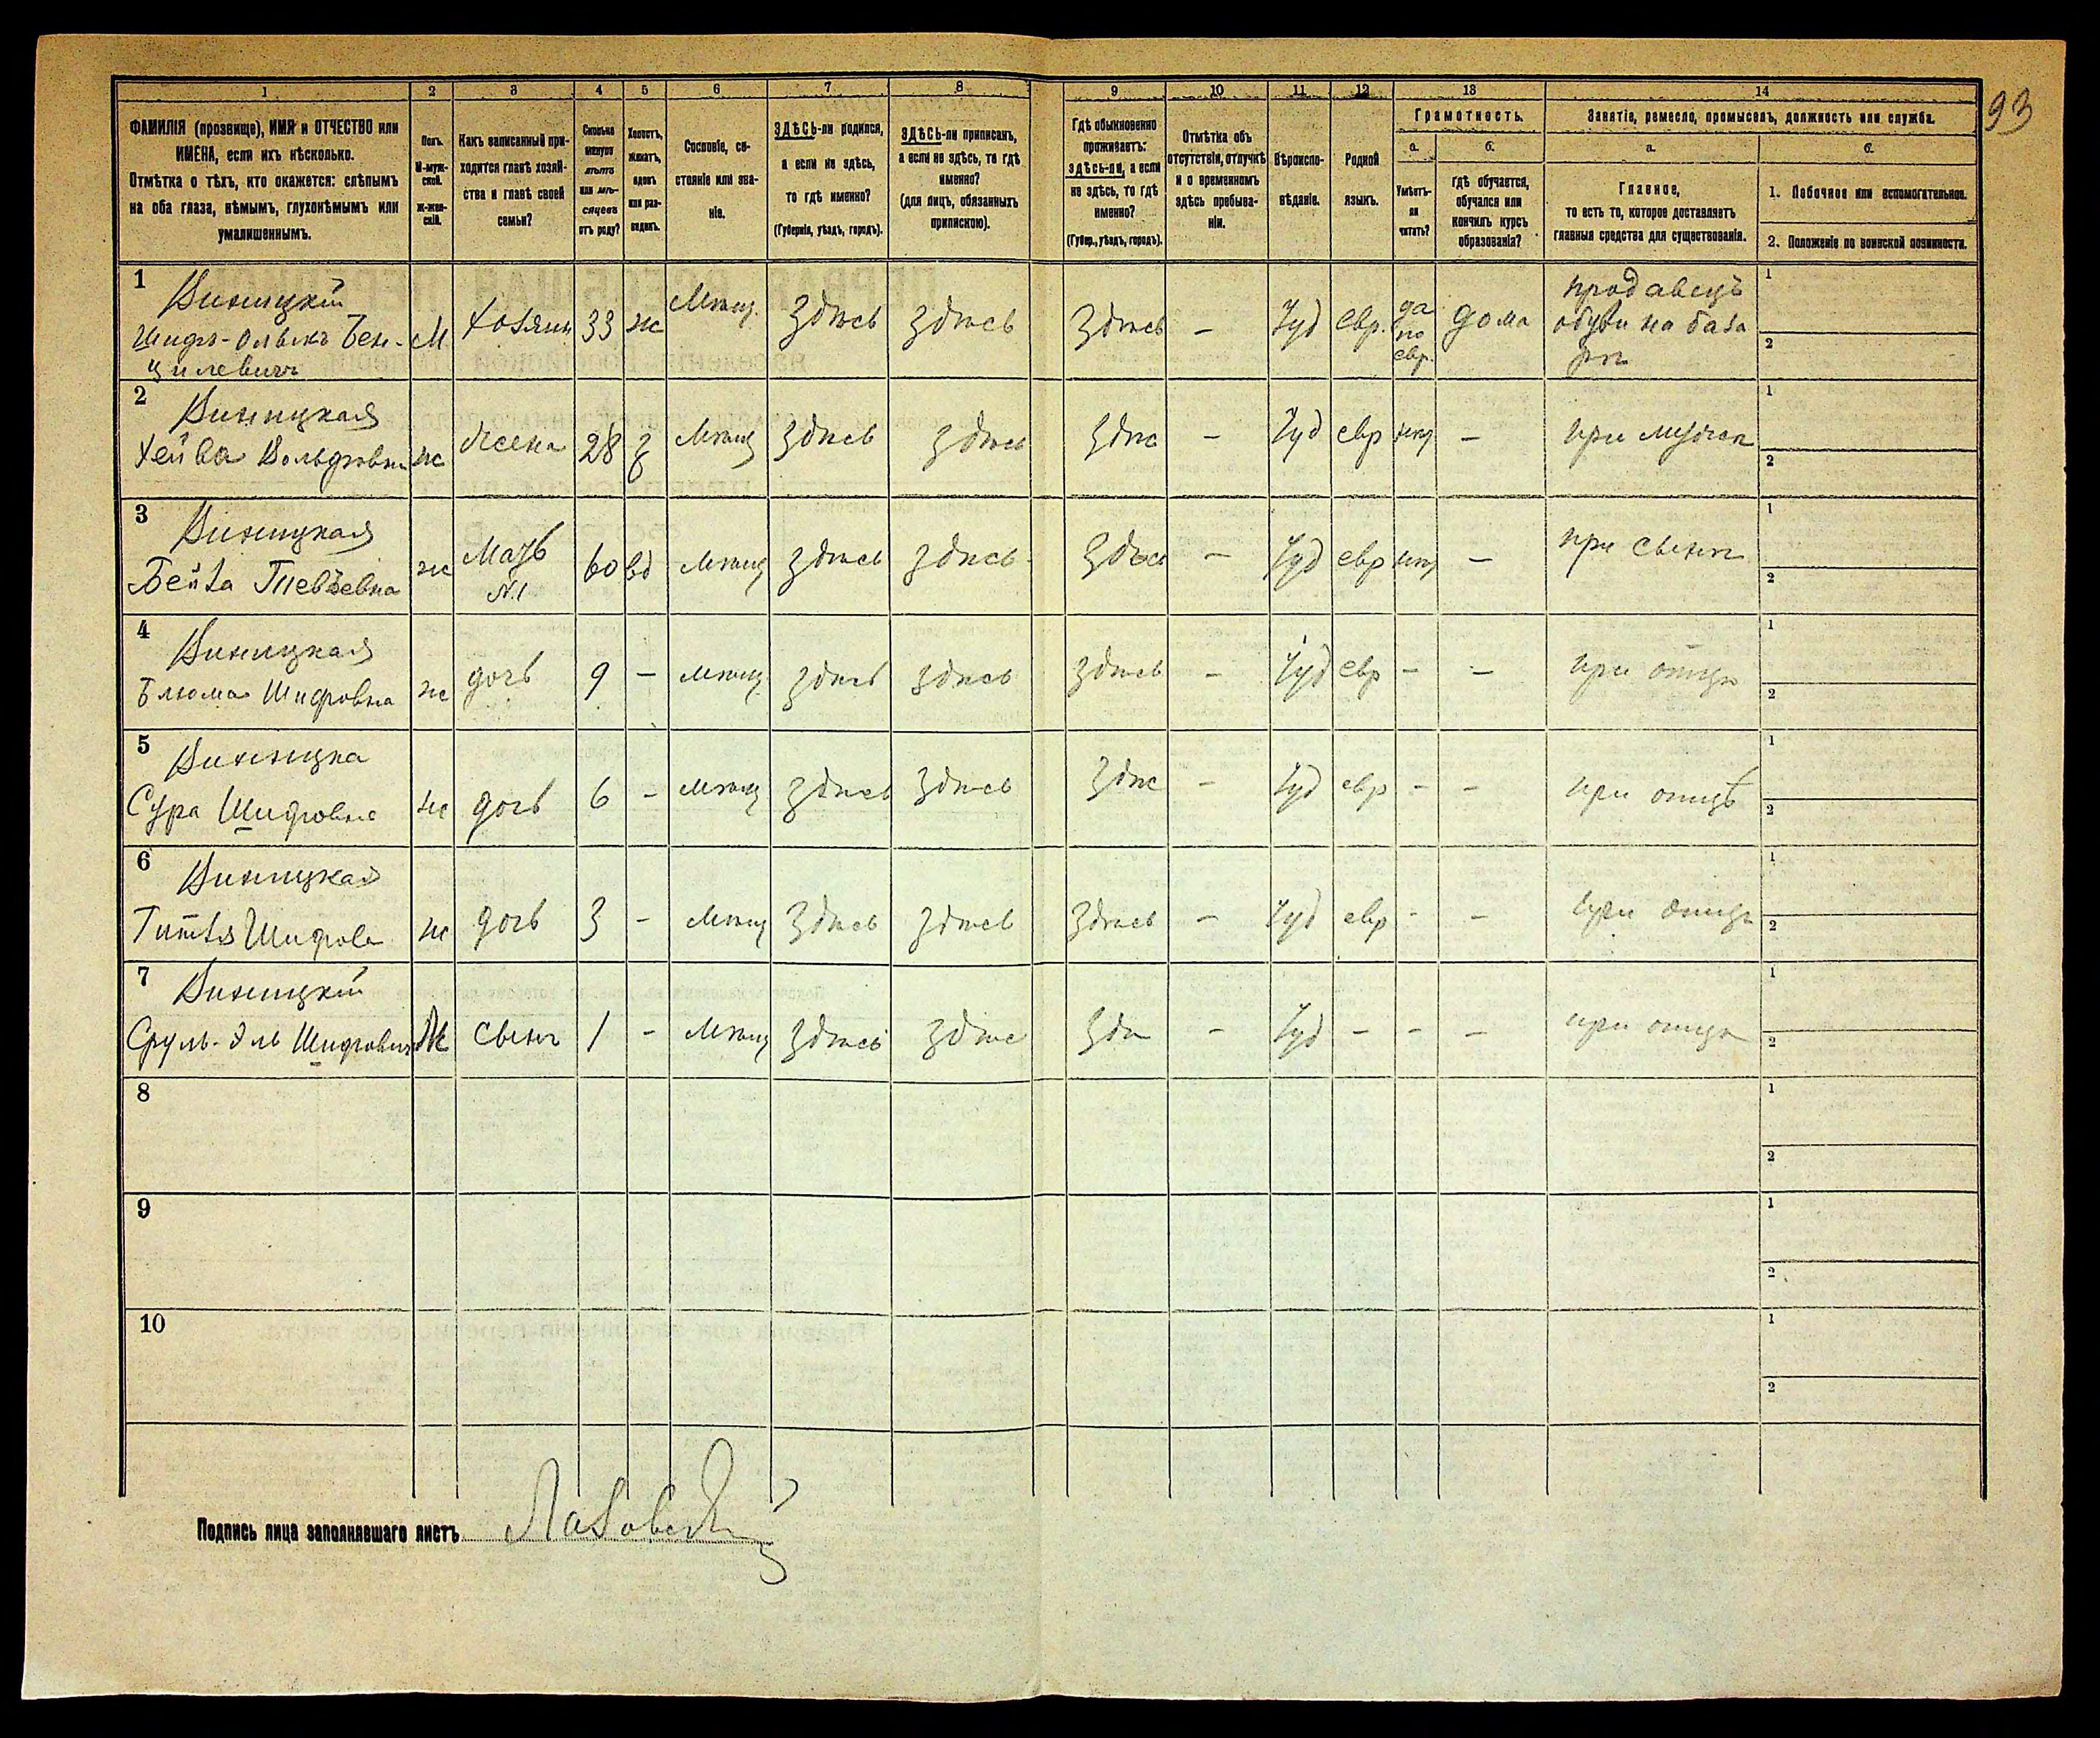 93
1 2 3 4 5 6 7 8 9 10 11 12 13 14
ФАМИЛІЯ (прозвище), ИМЯ и ОТЧЕСТВО или
ИМЕНА, если ихъ нѣсколько.
Отмѣтка о тѣхъ, кто окажется: слѣпымъ
на оба глаза, нѣмымъ, глухонѣмымъ или
умалишеннымъ.
Полъ.
М-муж-
ской.
Ж-жен-
скій.
Какъ записанный при-
ходится главѣ хозяй-
ства и главѣ своей
семьи?
Сколько
минуло
лѣтъ
или мѣ-
сяцевъ
отъ роду?
Холостъ,
женатъ,
вдовъ
или раз-
веденъ.
Сословіе, со-
стояніе или зва-
ніе.
ЗДѢСЬ-ли родился,
а если не здѣсь,
то гдѣ именно?
(Губернія, уѣздъ, городъ).
ЗДѢСЬ-ли приписанъ,
а если не здѣсь, то гдѣ
именно?
(для лицъ, обязанныхъ
припискою).
Гдѣ обыкновенно
проживаетъ:
здѣсь-ли, а если
не здѣсь, то гдѣ
именно?
(Губер., уѣздъ, городъ).
Отмѣтка объ
отсутствіи, отлучкѣ
и о временномъ
здѣсь пребыва-
ніи.
Вѣроиспо-
вѣданіе.
Родной
языкъ.
Грамотность.
а.
Умѣетъ-
ли
читать?
б.
гдѣ обучается,
обучался или
кончилъ курсъ
образованія?
Занятіе, ремесло, промыселъ, должность или служба.
а.
Главное,
то есть то, которое доставляетъ
главныя средства для существованія.
б.
1. Побочное или вспомогательное.
2. Положеніе по воинской повинности.
1 Виницкій
Шифъ- Бен-
цилевичъ
М Хозяин 33 ж Мѣщ. Здѣсь Здѣсь Здѣсь – Іуд евр.
да
по
евр.
дома
продавецъ
обуви на база
рѣ
1
2
2 Виницкая
Хейва Вольфовна ж Жена 28 з Мѣщ Здѣсь Здѣсь Здѣс – Іуд евр нѣт – при мужѣ
1
2
3 Виницкая
Бейла ж Мать
№1
60 вд Мѣщ здѣсь здѣсь Здѣсь – Іуд евр нѣт – при сынѣ
1
2
4 Виницкая
Блюма Шифовна ж дочь 9 – мѣщ здѣсь здѣсь здѣсь – Іуд евр – – при отцѣ
1
2
5 Виницка
Сура Шифовна ж дочь 6 – мѣщ здѣсь здѣсь Здѣс – Іуд евр – – при отцѣ
1
2
6 Виницкая
Шифова ж дочь 3 – Мѣщ Здѣсь здѣсь Здѣсь – Іуд евр – – при отцѣ
1
2
7 Виницкій
Сруль-Эль Шифович М сынъ 1 – Мѣщ Здѣсь Здѣс Здѣ – Іуд – – – при отцѣ
1
2
8
1
2
9
1
2
10
1
2
Подпись лица заполнявшаго листъ